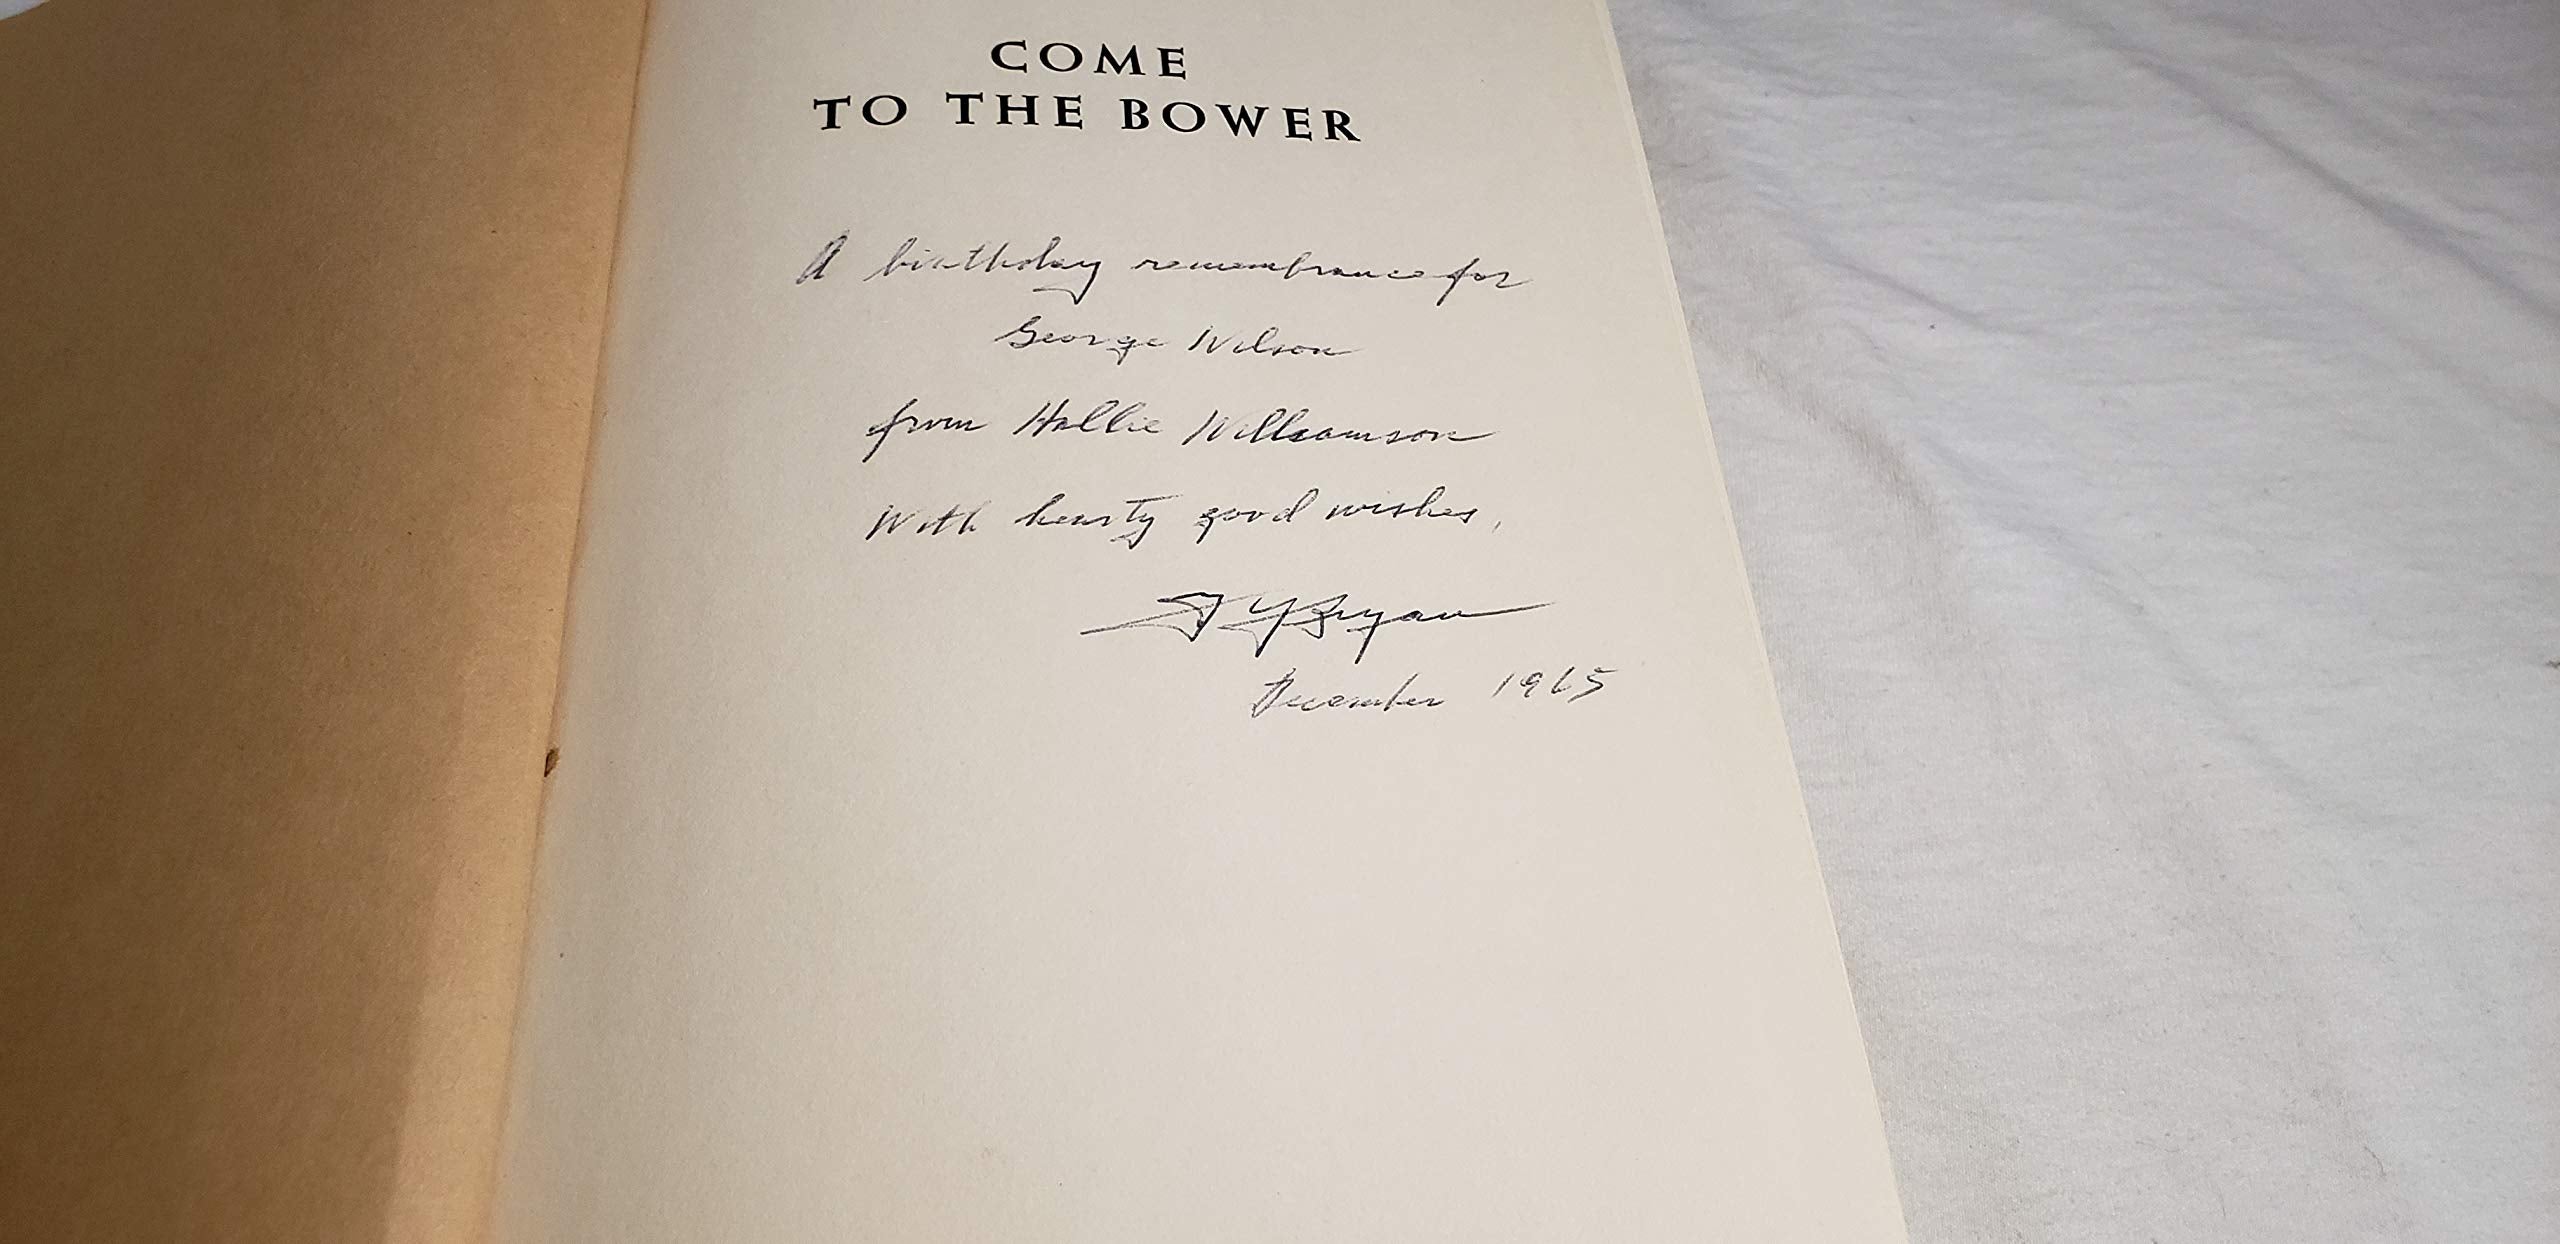 COME
TO THE BOWER
A birthday remembrance for
George Wilson
from Hallie Williamson
With hearty good wishes,
J Y Bryan
December 1965